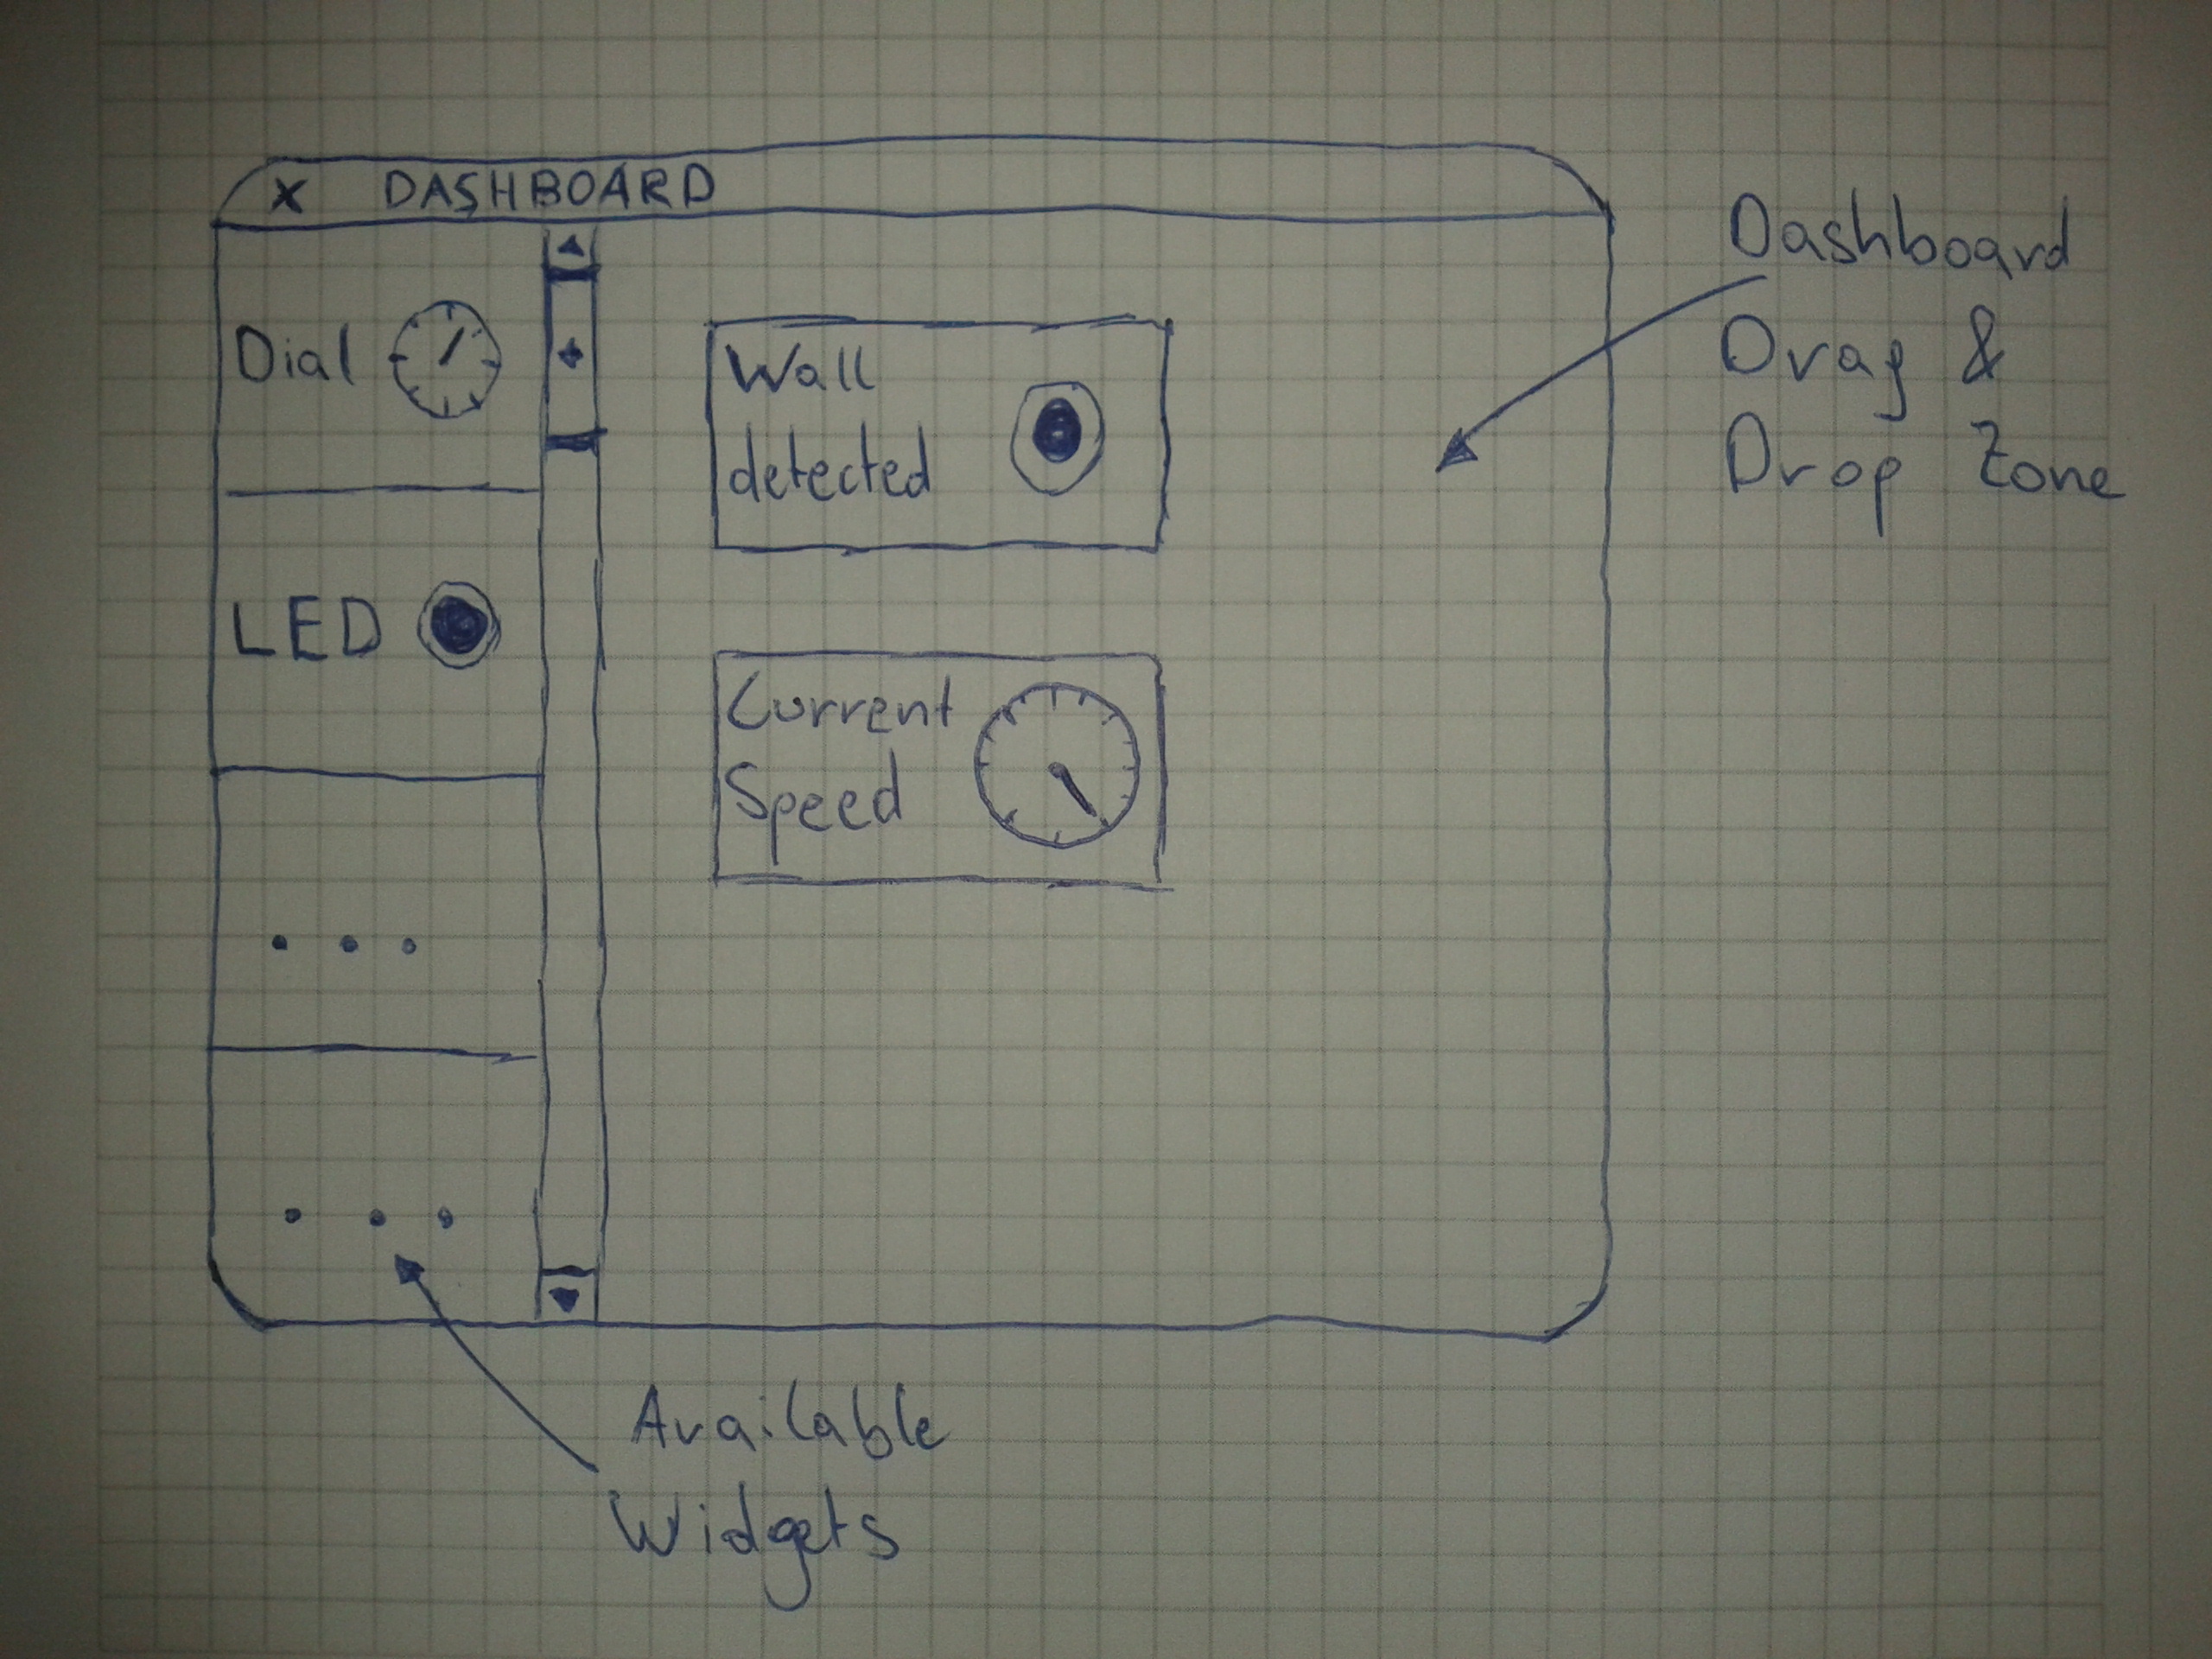 X DASHBOARD
Dial
LED
...
...
Wall
detected
Current
Speed
Dashboard
Drag &
Drop Zone
Available
Widgets